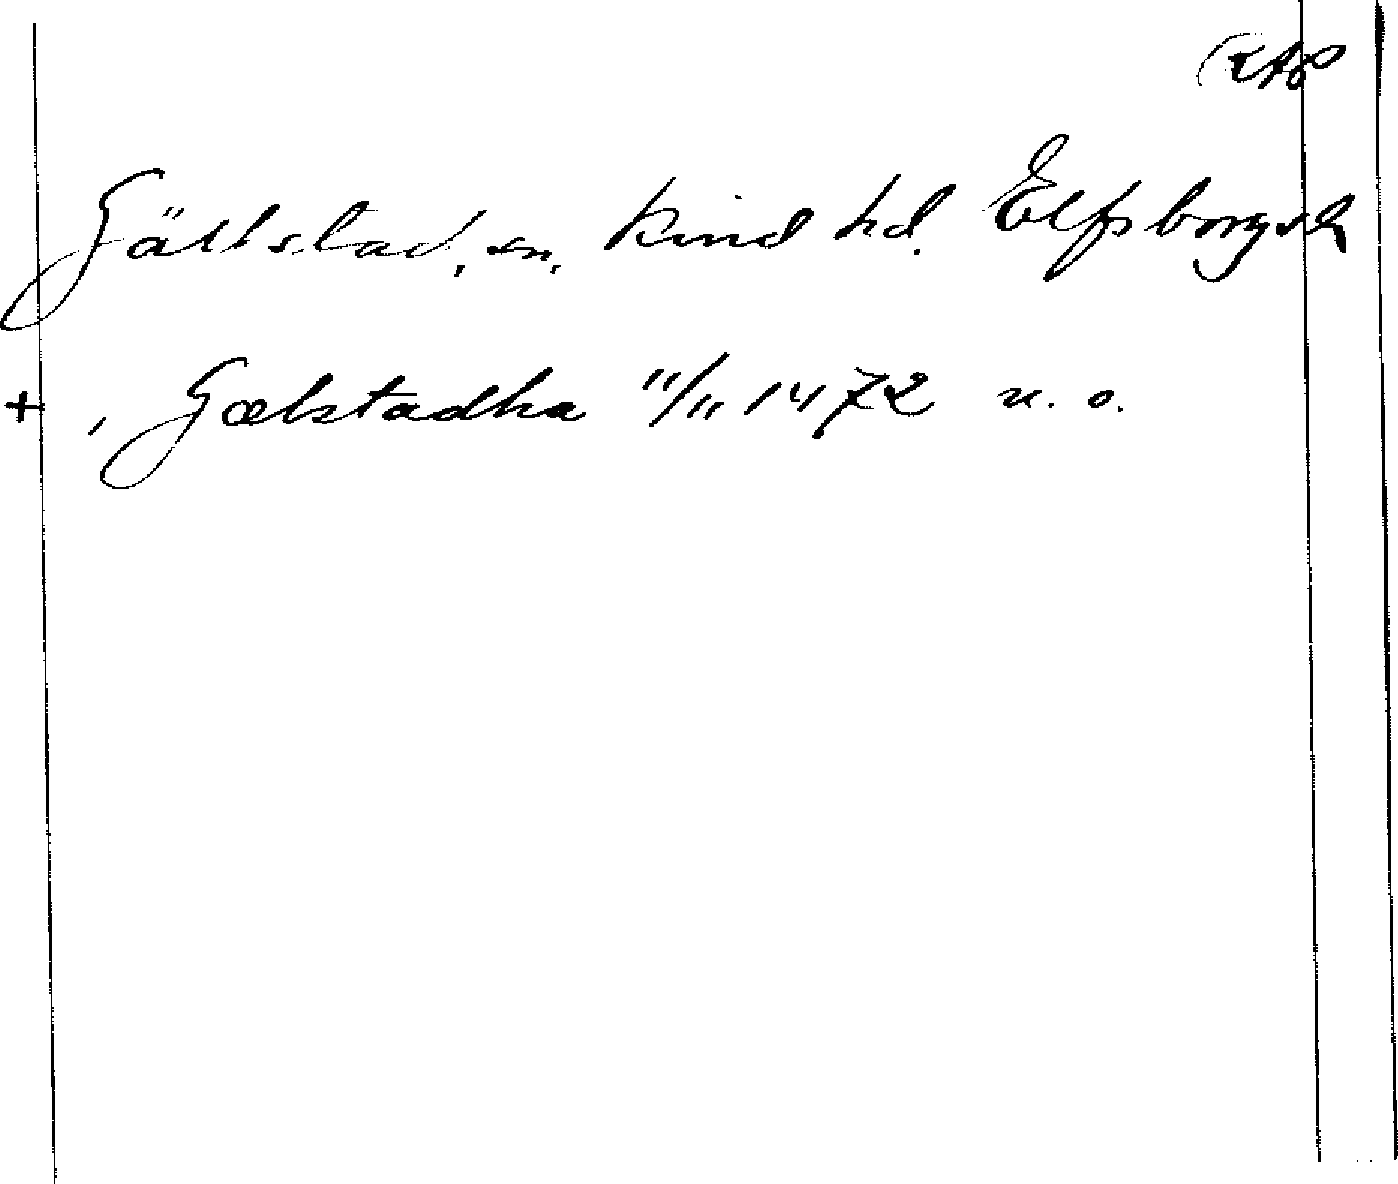 Gällstad, sn, Kind hd. Elfsborgs l
+ , Gælstadha 11/11 1472 n. o.